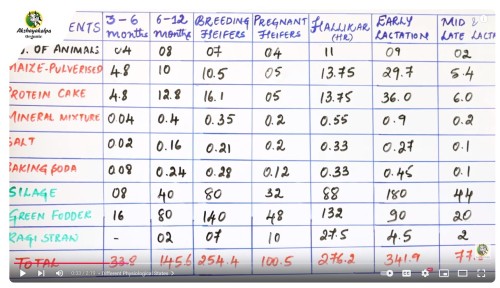 Akshayakalpa
Organic
ENTS 3-6 months 6-12 months BREEDING HEIFERS PREGNANT HEIFERS HALLIKAR (HR) EARLY LACTATION MID & LATE LACTA
. OF ANIMALS 04 08 07 04 11 09 02
MAIZE-PULVERISED 4.8 10 10.5 05 13.75 29.7 5.4
PROTEIN CAKE 4.8 12.8 16.1 05 13.75 36.0 6.0
MINERAL MIXTURE 0.04 0.4 0.35 0.2 0.55 0.9 0.2
SALT 0.02 0.16 0.21 0.2 0.33 0.27 0.1
BAKING SODA 0.08 0.24 0.28 0.12 0.33 0.45 0.1
SILAGE 08 40 80 32 88 180 44
GREEN FODDER 16 80 140 48 132 90 20
RAGI STRAW - 02 07 10 27.5 4.5 2
TOTAL 33.8 145.6 254.4 100.5 276.2 341.9
Different Physiological States